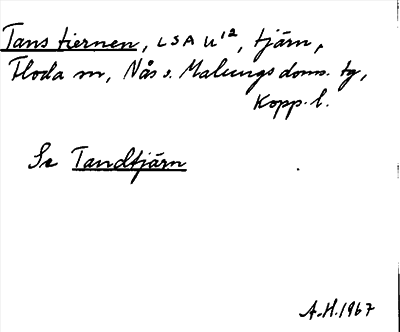 Tans tiernen, LSA U¹², tjärn,
Floda sn, Nås o. Malungs doms. tg,
Kopp. l.
Se Tandtjärn
A.H. 1967